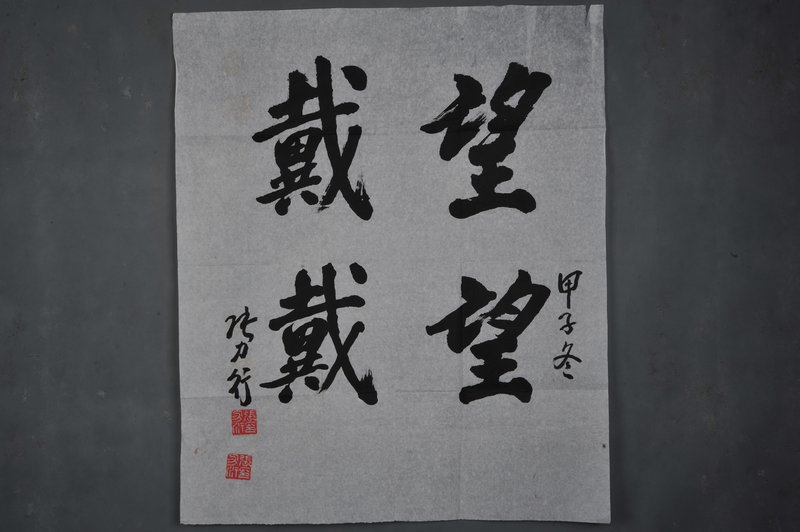 甲子冬
望望
戴戴
张力行